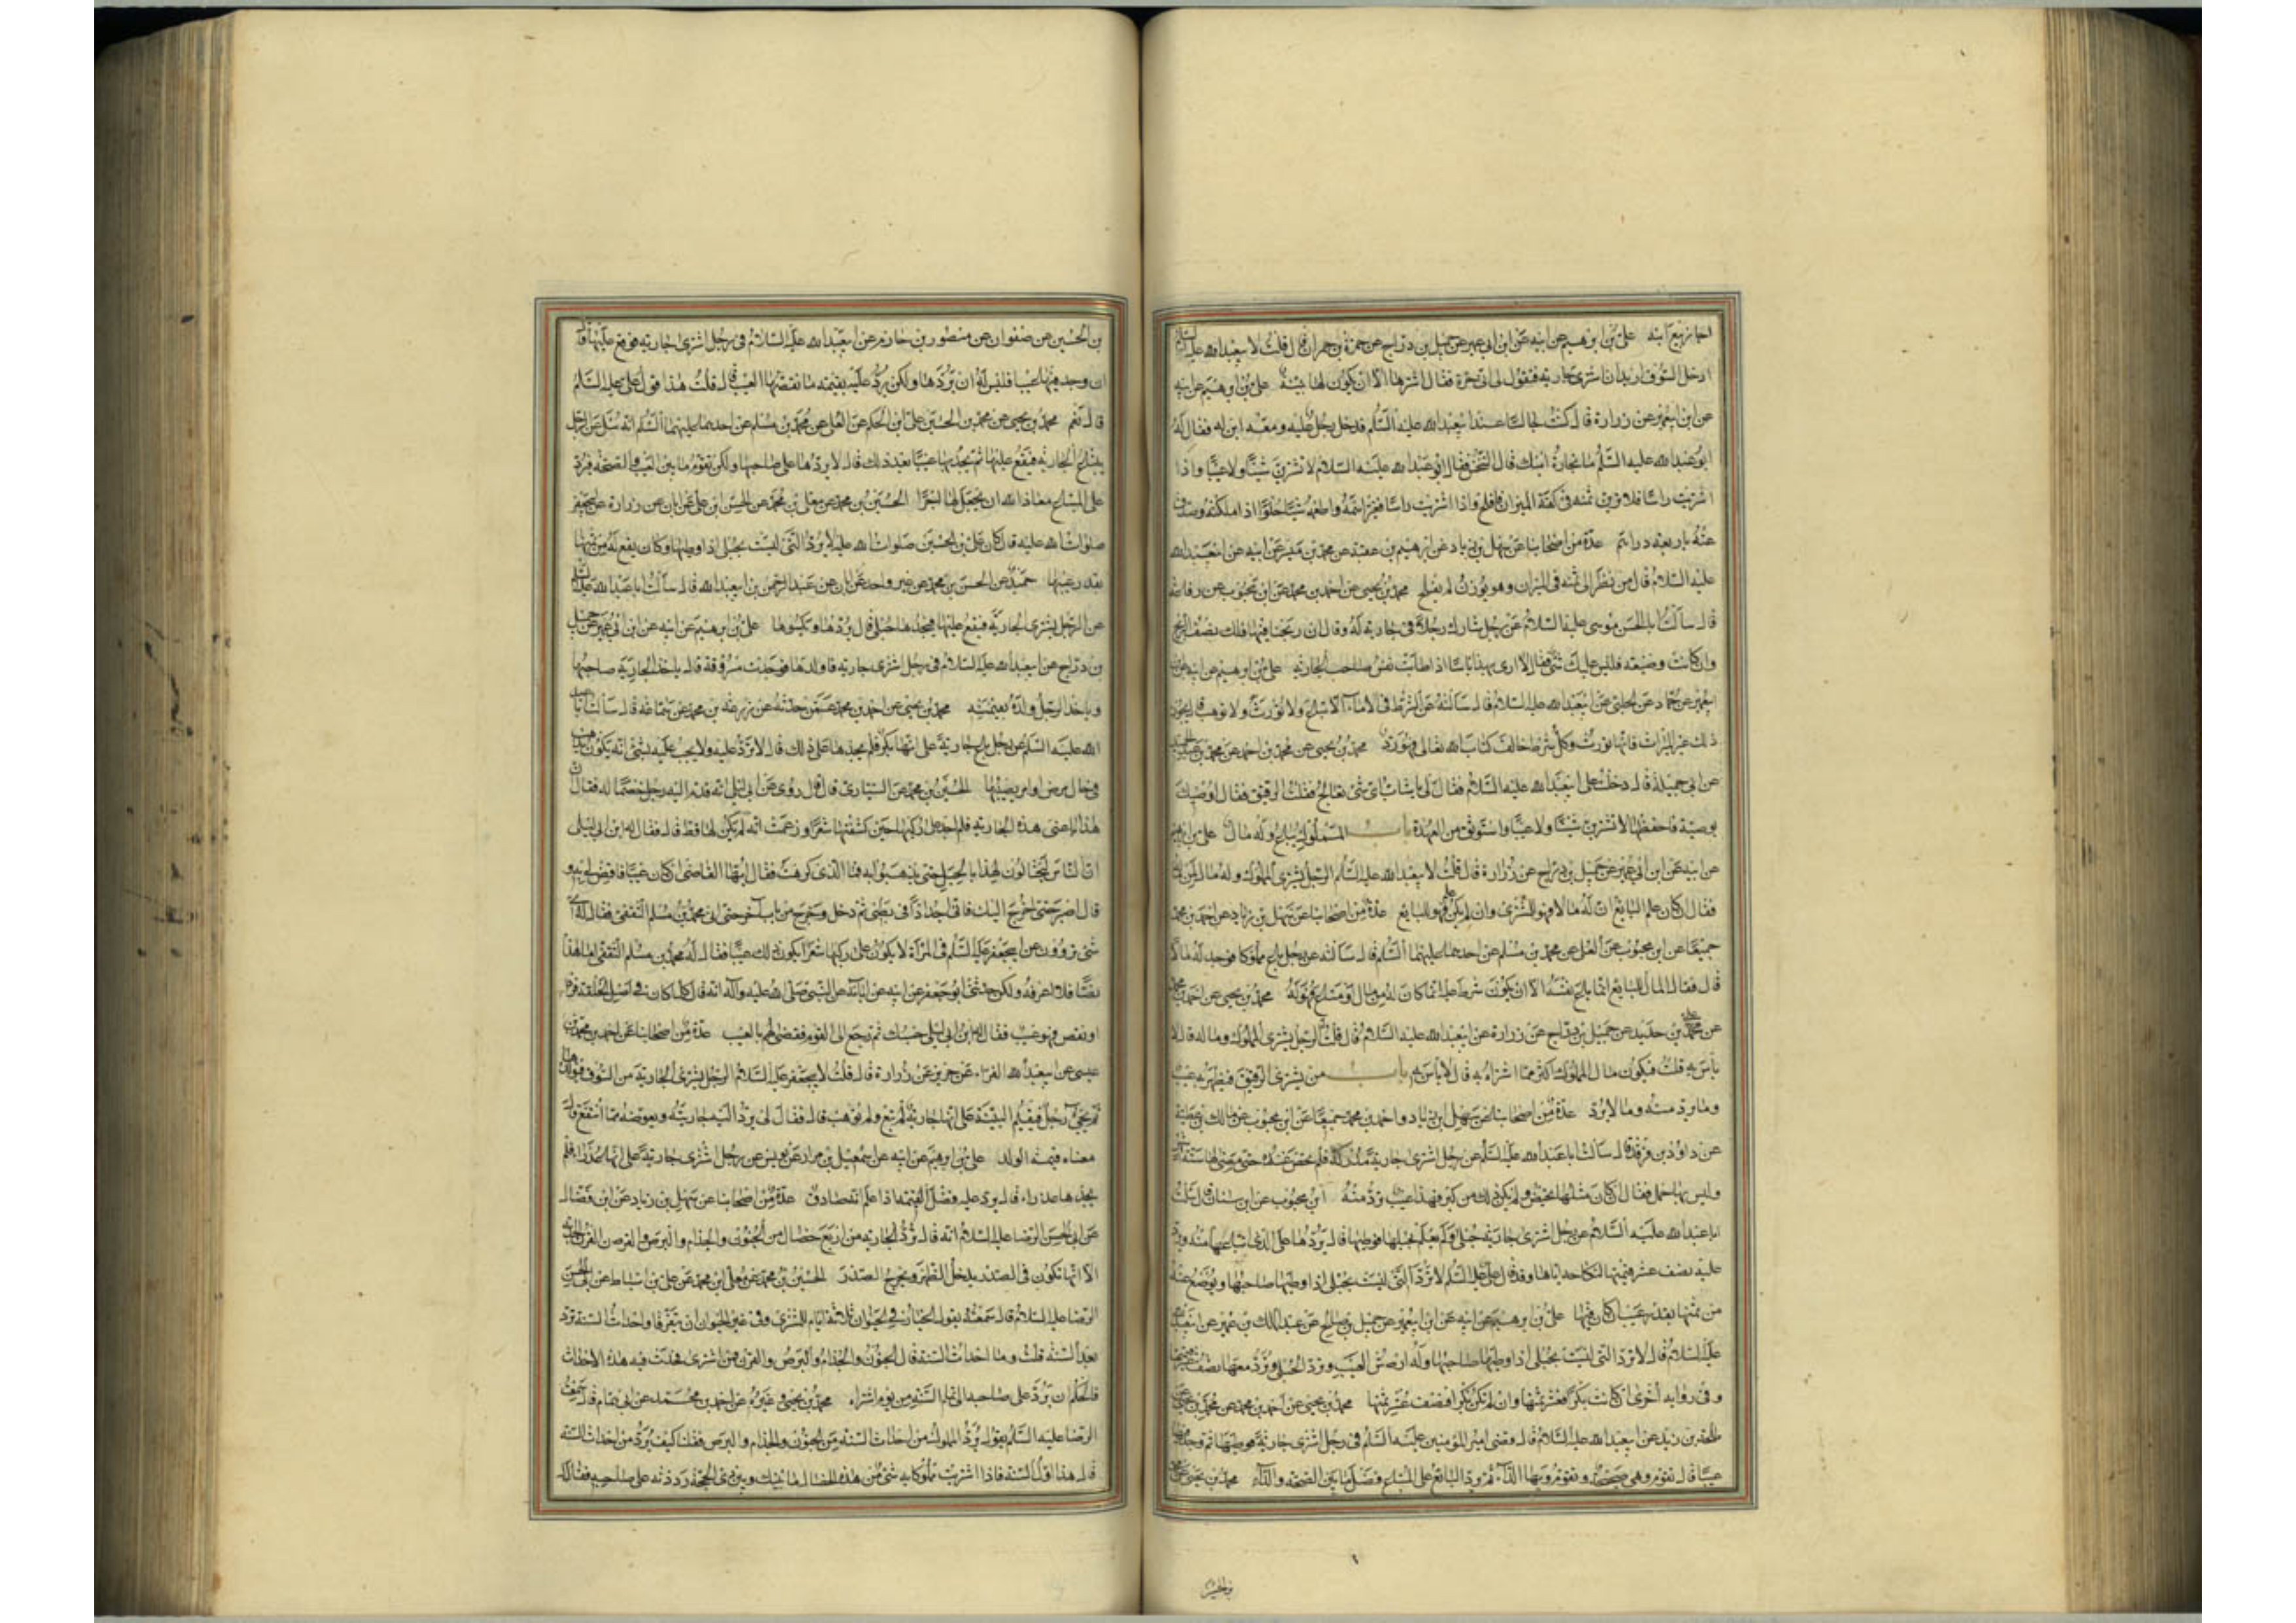 اجاز بيع ابنه علي بن ابرهيم عن ابيه عن ابن ابي عمير عن جميل بن دراج عن حمزة بن حمران قال قلت لابيعبدالله عليه السلام
ادخل السوق اريد ان اشترى جارية فتقول لى انى حرة فقال اشترها الا ان يكون لها بينة علي بن ابرهيم عن ابيه
عن ابن ابيعمير عن زرارة قال كنت جالسا عند ابيعبدالله عليه السلم فدخل رجل عليه ومعه ابن له فقال له
ابوعبدالله عليه السلم ما تجارة ابنك قال التنخس فقال ابوعبدالله عليه السلام لا تشترين شينا ولا عيبا واذا
اشتريت راسا فلا ترين ثمنه فى كفة الميزان فما فلح واذا اشتريت راسا فغير اسمه واطعمه شيئا حلوا اذا ملكته وصدق
عنه باربعة دراهم عدة من اصحابنا عن سهل بن زياد عن ابرهيم بن عقبة عن محمد بن ميسر عن ابيه عن ابيعبدالله
عليه السلام قال من نظر الى ثمنه فى الميزان وهو يوزن لم يفلح محمد بن يحيى عن احمد بن محمد عن ابن محبوب عن رفاعة
قال سالت ابا الحسن موسى عليه السلام عن رجل شارك رجلا فى جارية له وقال ان ربحنا فيها فلك نصف الربح
وان كانت وضيعة فليس عليك شئ فقال لا ارى بهذا باسا اذا طابت نفس صاحب الجارية علي بن ابرهيم عن ابيه عن ابن
ابيعمير عن حماد عن الحلبى عن ابيعبدالله عليه السلام قال سالته عن الشرط فى الاماء الا تباع ولا تورث ولا توهب قال يجوز
ذلك غير الميراث فانها تورث وكل شرط خالف كتاب الله تعالى فهو رد محمد بن يحيى عن محمد بن احمد عن محمد بن عبدالحميد
عن ابى جميلة قال دخلت على ابيعبدالله عليه السلام فقال لى يا شاب اى شئ تعالج فقلت الرقيق فقال اوصيك
بوصية فاحفظها لا تشترين شينا ولا عيبا واستوثق من العهدة باب المملوك يباع وله مال علي بن ابرهيم
عن ابيه عن ابن ابي عمير عن جميل بن دراج عن زرارة قال قلت لابيعبدالله عليه السلم الرجل يشترى المملوك وله مال لمن ماله
فقال ان كان علم البايع ان له مالا فهو للمشترى وان لم يكن علم فهو للبايع عدة من اصحابنا عن سهل بن زياد وعن احمد بن محمد
جميعا عن ابن محبوب عن العلا عن محمد بن مسلم عن احدهما عليهما السلم قال سالته عن رجل باع مملوكا فوجد له مالا
قال فقال المال للبايع انما باع نفسه الا ان يكون شرط عليه انما كان له من مال او متاع فهو له محمد بن يحيى عن احمد بن محمد
عن على بن حديد عن جميل بن دراج عن زرارة عن ابيعبدالله عليه السلام قال قلت الرجل يشترى المملوك وماله قال لا
بأس به قلت فيكون مال المملوك اكثر مما اشتراه به قال لا بأس به باب من يشترى الرقيق فيظهر به عيب
وما يرد منه وما لا يرد عدة من اصحابنا عن سهل بن زياد واحمد بن محمد جميعا عن ابن محبوب عن مالك بن عطية
عن داود بن فرقد قال سالت ابا عبدالله عليه السلم عن رجل اشترى جارية مدركة فلم تحض عنده حتى مضى لها ستة اشهر
وليس بها حمل فقال ان كان مثلها تحيض ولم يكن ذلك من كبر فهذا عيب ترد منه ابن محبوب عن ابن سنان قال سالت
ابا عبدالله عليه السلام عن رجل اشترى جارية حبلى ولم يعلم بحبلها فوطيها قال يردها على الذى ابتاعها منه ويرد
عليه نصف عشر قيمتها لنكاحه اياها وقد قال على عليه السلم لا ترد التى ليست بحبلى اذا وطيها صاحبها ويوضع عنه
من ثمنها بقدر عيب ان كان فيها علي بن ابرهيم عن ابيه عن ابن ابيعمير عن جميل بن صالح عن عبدالملك بن عمير عن ابيعبدالله
عليه السلام قال لا ترد التى ليست بحبلى اذا وطيها صاحبها وله ارش العيب وترد الحبلى ويرد معها نصف عشر قيمتها
وفى رواية اخرى ان كانت بكرا فعشر ثمنها وان لم تكن بكرا فنصف عشر ثمنها محمد بن يحيى عن احمد بن محمد عن محمد بن يحيى
طلحة بن زيد عن ابيعبدالله عليه السلام قال قضى امير المؤمنين عليه السلم فى رجل اشترى جارية فوطيها ثم وجد فيها
عيبا قال تقوم وهى صحيحة وتقوم وبها الداء ثم يرد البايع على المبتاع فضل ما بين الصحة والداء محمد بن يحيى عن محمد
بن الحسين
بن الحسين عن صفوان عن منصور بن حازم عن ابيعبدالله عليه السلام فى رجل اشترى جارية فوقع عليها قال
ان وجد فيها عيبا فليس له ان يردها ولكن يرد عليه بقيمة ما نقصها العيب قال قلت هذا قول على عليه السلم
قال نعم محمد بن يحيى عن محمد بن الحسين على بن الحكم عن العلا عن محمد بن مسلم عن احدهما عليهما السلم انه سئل عن الرجل
يبتاع الجارية فيقع عليها ثم يجد بها عيبا بعد ذلك قال لا يردها على صاحبها ولكن تقوم ما بين العيب والصحة فيرد
على المبتاع معاذ الله ان يجعل لها اجرا الحسين بن محمد عن معلى بن محمد عن الحسن بن على عن ابان عن زرارة عن ابيجعفر
صلوات الله عليه قال كان على بن الحسين صلوات الله عليه لا يرد التى ليست بحبلى اذا وطيها وكان يضع له من ثمنها
بقدر عيبها حميد عن الحسن بن محمد عن غير واحد عن ابان عن عبدالرحمن بن ابيعبدالله قال سالت ابا عبدالله عليه السلم
عن الرجل يشترى الجارية فيقع عليها فيجدها حبلى قال يردها ويكسوها علي بن ابرهيم عن ابيه عن ابن ابي عمير عن جميل
بن دراج عن ابيعبدالله عليه السلام فى رجل اشترى جارية فاولدها فوجدت مسروقة قال ياخذ الجارية صاحبها
وياخذ الرجل ولده بقيمته محمد بن يحيى عن احمد بن محمد عمن حدثه عن زرعة بن محمد عن سماعة قال سالت ابا عبد
الله عليه السلم عن رجل باع جارية على انها بكر فلم يجدها على ذلك قال لا ترد عليه ولا يجب عليه شئ انه يكون يذهب
فى حال مرض او امر يصيبها الحسين بن محمد عن السيارى قال قال روى عن ابى ليلى انه قدم اليه رجل خصما له فقال ان
هذا باعنى هذه الجارية فلم اجد على ركبها حين كشفتها شعرا وزعمت انه لم يكن لها قط قال فقال له ابن ابى ليلى
ان الناس ليحتالون لهذا بالحيل حتى يذهبوا به فما الذى كرهت فقال ايها القاضى ان كان عيبا فاقض لى به و
قال اصبر حتى اخرج اليك فانى اجد اذى فى بطنى ثم دخل وخرج من باب اخر حتى اتى محمد بن مسلم الثقفى فقال له اى
شئ تروون عن ابيجعفر عليه السلم فى المراة لا يكون على ركبها شعر ايكون ذلك عيبا فقال له محمد بن مسلم الثقفى اما هذا
نصا فلا اعرفه ولكن حدثنى ابوجعفر عن ابيه عن ابائه عن النبى صلى الله عليه وآله انه قال كلما كان فى اصل الخلقة فزاد
او نقص فهو عيب فقال له ابن ابى ليلى حسبك ثم رجع الى القوم فقضى لهم بالعيب عدة من اصحابنا عن احمد بن محمد بن
عيسى عن ابيعبدالله الفراء عن حريز عن زرارة قال قلت لابيجعفر عليه السلام الرجل يشترى الجارية من السوق فيولدها
ثم يجىء رجل فيقيم البينة على انها جاريته لم تبع ولم توهب قال فقال لى يرد اليه جاريته ويعوضه مما انتفع قال كان
معناه قيمة الولد علي بن ابرهيم عن ابيه عن اسمعيل بن مرار عن يونس عن رجل اشترى جارية على انها عذراء فلم
يجدها عذراء قال يرد عليه فضل القيمة اذا علم انه صادق عدة من اصحابنا عن سهل بن زياد عن ابن فضال
عن ابى الحسن الرضا عليه السلام انه قال ترد الجارية من اربع خصال من الجنون والجذام والبرص والقرن القرن الحدبة
الا انها تكون فى الصدر يدخل الظهر ويخرج الصدر الحسين بن محمد عن معلى بن محمد عن على بن اسباط عن ابى الحسن
الرضا عليه السلام قال سمعته يقول الخيار فى الحيوان ثلاثة ايام للمشترى وفى غير الحيوان ان يتفرقا واحداث السنة ترد
بعد السنة قلت وما احداث السنة قال الجنون والجذام والبرص والقرن فمن اشترى فحدث فيه هذه الاحداث
فالحكم ان يرد على صاحبه الى تمام السنة من يوم اشتراه محمد بن يحيى وغيره عن احمد بن محمد عن ابى همام قال سمعت
الرضا عليه السلم يقول يرد المملوك من احداث السنة من الجنون والجذام والبرص فقلت كيف يرد من احداث السنة
قال هذا اول السنة فاذا اشتريت مملوكا به شئ من هذه الخصال ما بينك وبين ذى الحجة رددته على صاحبه فقال له